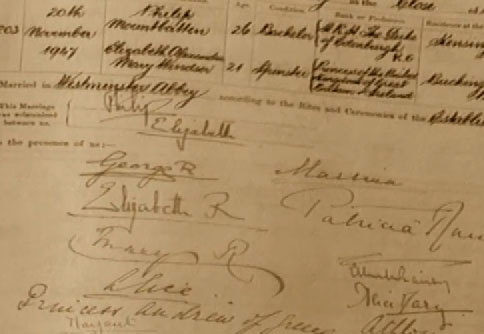 the Close
Age. Condition. Rank or Profession. Residence at the
20th Philip
November Mountbatten 26 Bachelor H.R.H. The Duke of Edinburgh K G Kensing
1947 Elizabeth Alexandra Mary Windsor 21 Spinster Princess of the United Kingdom of Great Britain & Ireland Bucking
Married in Westminster Abbey according to the Rites and Ceremonies of the Establi
This Marriage was solemnized between us, Philip
Elizabeth
in the presence of us:—
George R Marina
Elizabeth R Patricia
Mary R
Alice
Princess Andrew of Greece
Margaret